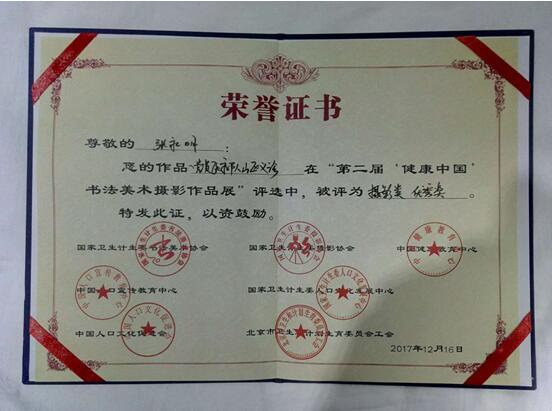 荣誉证书
尊敬的 张和平：
您的作品 在“第二届‘健康中国’
书法美术摄影作品展”评选中，被评为 摄影类 优秀奖。
特发此证，以资鼓励。
国家卫生计生委书法美术协会 国家卫生计生委摄影协会 中国健康教育中心
中国人口宣传教育中心 国家卫生计生委人口文化发展中心
中国人口文化促进会 北京市卫生和计划生育委员会工会
2017年12月16日